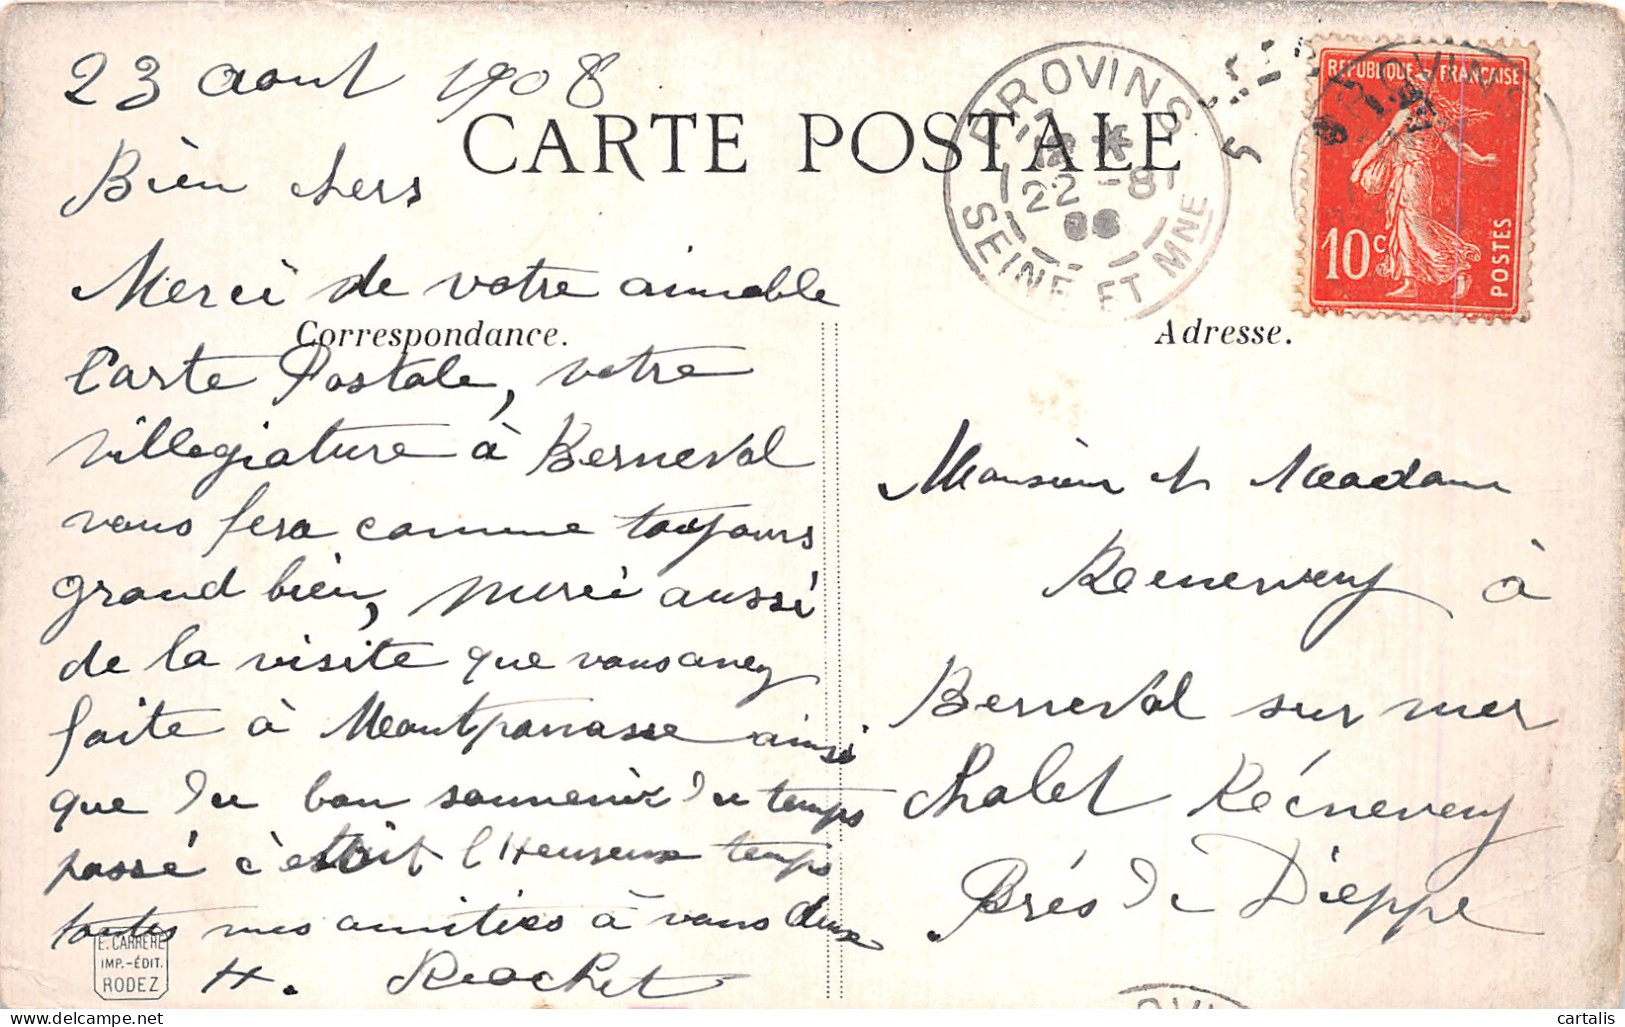 23 aout 1908
CARTE POSTALE
PROVINS
12 *
22 -8
08
SEINE ET MNE
PROVINS
REPUBLIQUE FRANÇAISE
10c
POSTES
Bien chers
Merci de votre aimable
Correspondance.
Carte Postale, votre
villegiature à Berneval
vous fera comme toujours
grand bien, merci aussi
de la visite que vous avez
faite à Montparnasse ainsi
que du bon souvenir du temps
passé c'etait l'Heureux temps
toutes mes amitiés à vous deux
H. Rochet
E. CARRERE
IMP.-ÉDIT.
RODEZ
Adresse.
Monsieur et Madame
à
Berneval sur mer
chalet
Prés de Dieppe
cartalis